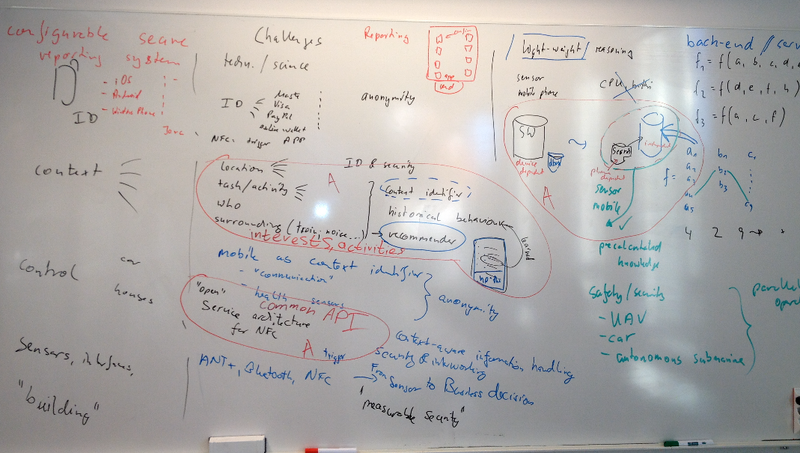 configurable secure
reporting system
- iOS
- Android
- Windows Phone
Java
ID
context
control
car
houses
Sensors, interfaces,
"building"
Challenges
techn. / science
ID
Visa
PayPal
anonymity
NFC trigger APP
ID & security
location
task/activity
who
surrounding (train, noise...)
interests, activities
A
Context identifier
historical behaviour
recommender
mobile as context identifier
- "communication"
- health sensors
anonymity
"open"
common API
Service architecture
for NFC
A
trigger
ANT+, Bluetooth, NFC
context-aware information handling
security & interworking
From Sensor to Business decision
"measurable security"
Reporting
Light-weight / reasoning
sensor
mobile phone
CPU,
SW
A
sensor
mobile
precalculated
knowledge
safety/security
- UAV
- car
- autonomous submarine
parallel
back-end / serv
f₁ = f(a, b, c, d,
f₂ = f(d, e, f, h)
f₃ = f(a, c, f)
f =
a₁ b₁ c₁
a₂ b₂
a₃ b₃
a₅
c₉
4 2 9